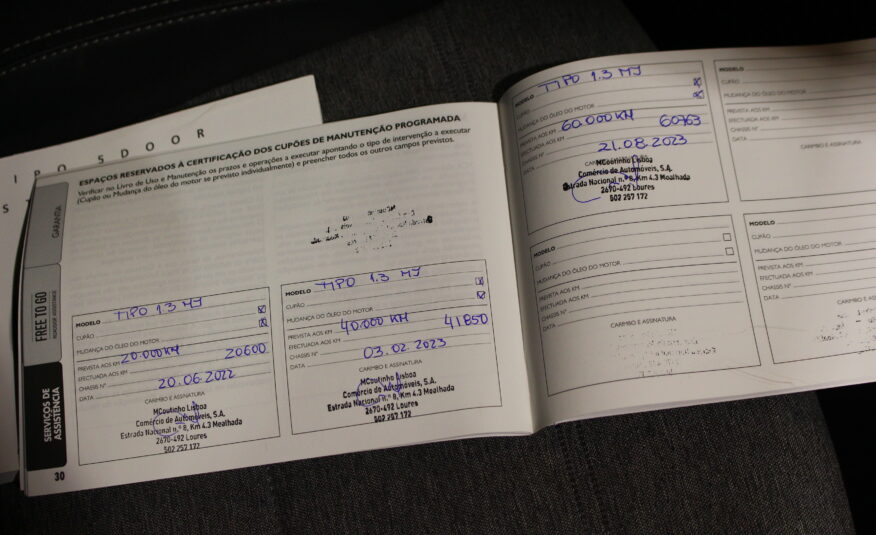 I P O 5 D O O R
S
ESPAÇOS RESERVADOS À CERTIFICAÇÃO DOS CUPÕES DE MANUTENÇÃO PROGRAMADA
Verificar no Livro de Uso e Manutenção os prazos e operações a executar apontando o tipo de intervenção a executar
(Cupão ou Mudança do óleo do motor se previsto individualmente) e preencher todos os outros campos previstos.
GARANTIA
FREE TO GO
SERVIÇOS DE
ASSISTÊNCIA
MODELO TIPO 1.3 MJ
CUPÃO
MUDANÇA DO ÓLEO DO MOTOR
PREVISTA AOS KM 20.000 KM
EFECTUADA AOS KM 20600
CHASSIS N°
DATA 20.06.2022
CARIMBO E ASSINATURA
MCoutinho Lisboa
Comércio de Automóveis, S.A.
Estrada Nacional n.º 8, Km 4.3 Mealhada
2670-492 Loures
502 257 172
30
MODELO TIPO 1.3 MJ
CUPÃO
MUDANÇA DO ÓLEO DO MOTOR
PREVISTA AOS KM 40.000 KM
EFECTUADA AOS KM 41850
CHASSIS N°
DATA 03.02.2023
CARIMBO E ASSINATURA
MCoutinho Lisboa
Comércio de Automóveis, S.A.
Estrada Nacional n.º 8, Km 4.3 Mealhada
2670-492 Loures
502 257 172
MODELO TIPO 1.3 MJ
CUPÃO
MUDANÇA DO ÓLEO DO MOTOR
PREVISTA AOS KM 60.000 KM
EFECTUADA AOS KM
CHASSIS N°
DATA 21.08.2023
MCoutinho Lisboa
Comércio de Automóveis, S.A.
Estrada Nacional n.º 8, Km 4.3 Mealhada
2670-492 Loures
502 257 172
MODELO
CUPÃO
MUDANÇA DO ÓLEO DO MOTOR
PREVISTA AOS KM
EFECTUADA AOS KM
CHASSIS N°
DATA
CARIMBO E ASSINATURA
MODELO
CUPÃO
MUDANÇA DO ÓLEO DO MOTOR
PREVISTA AOS KM
EFECTUADA AOS KM
CHASSIS N°
DATA
CARIMBO E ASSINATURA
MODELO
CUPÃO
MUDANÇA DO ÓLEO DO MOTOR
PREVISTA AOS KM
EFECTUADA AOS KM
CHASSIS N°
DATA
CARIMBO E ASSINATURA